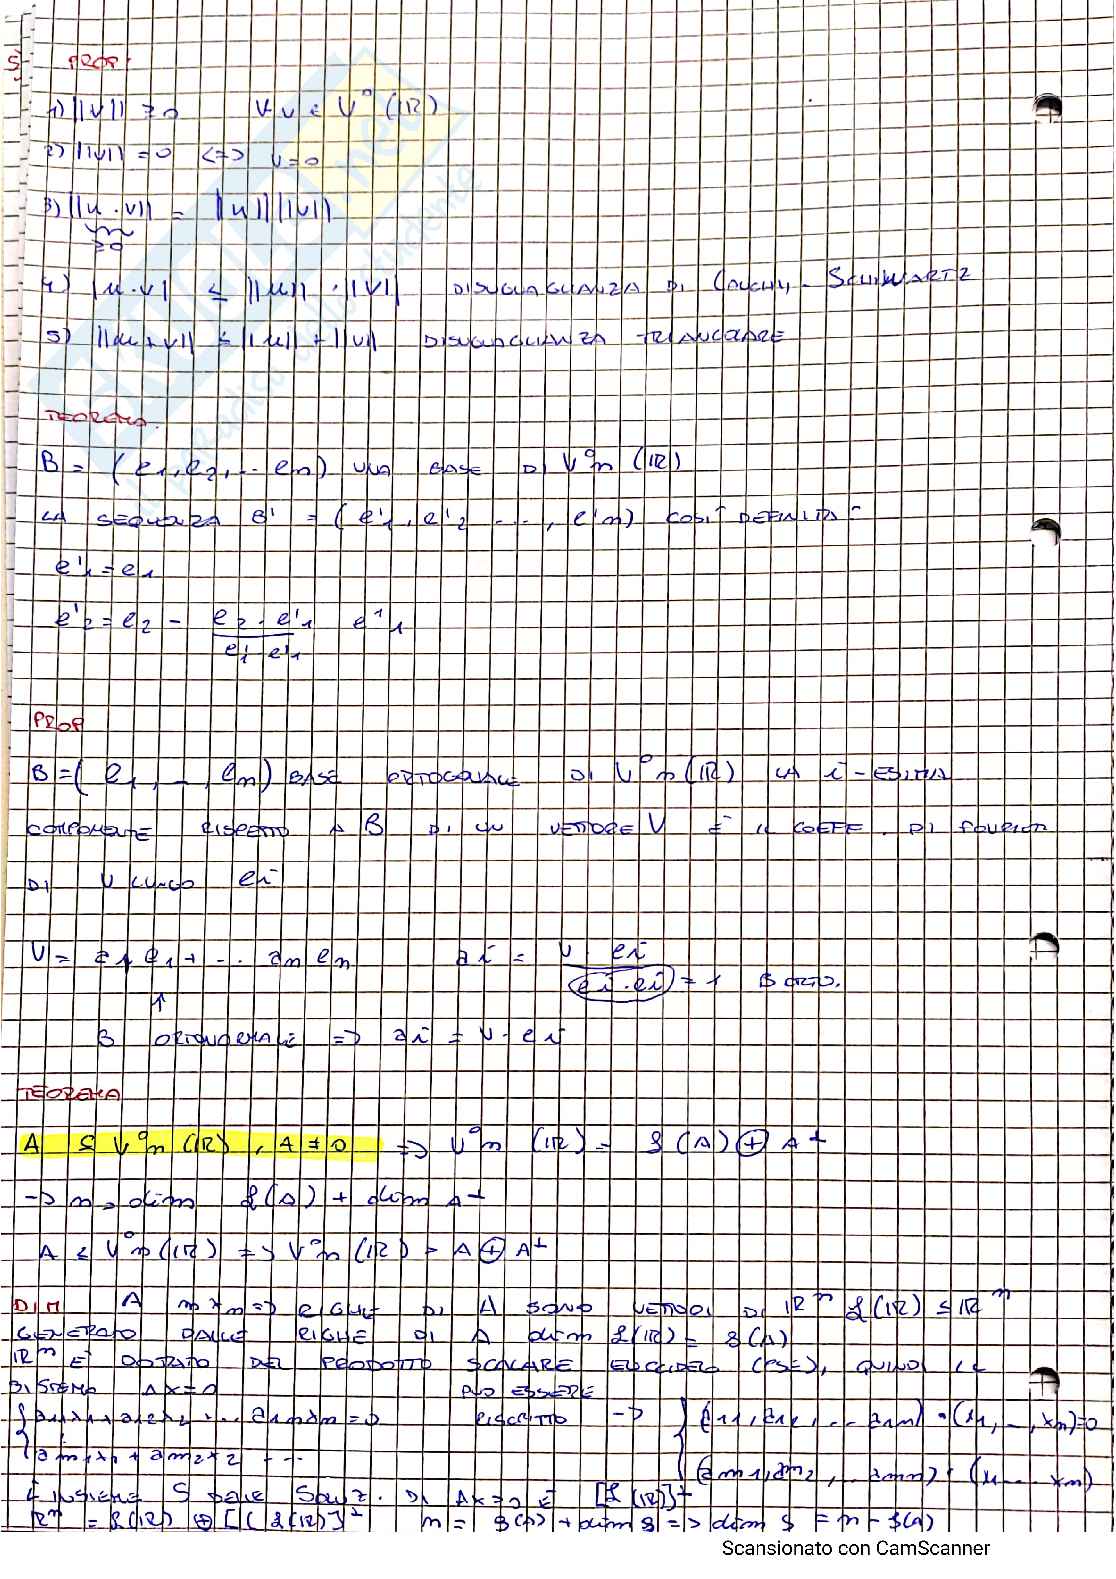 5) PROP
1) ||v|| ≥ 0   ∀ v ∈ V°n (IR)
2) ||v|| = 0 <=> v = 0
3) ||u · v|| = ||u|| ||v||
≥0
4) |u · v| ≤ ||u|| · ||v||   DISUGUAGLIANZA DI CAUCHY - SCHWARTZ
5) ||u + v|| ≤ ||u|| + ||v||   DISUGUAGLIANZA TRIANGOLARE
TEOREMA.
B = (e1, e2, .. en) UNA BASE DI V°n (IR)
LA SEQUENZA B' = (e'1, e'2 ..., e'n) COSÌ DEFINITA:
e'1 = e1
e'2 = e2 - (e2 · e'1)/(e'1 · e'1) e'1
PROP
B = (e1, -, en) BASE ORTOGONALE DI V°n (IR) LA i-ESIMA
COMPONENTE RISPETTO A B DI UN VETTORE V È IL COEFF. DI FOURIER
DI V LUNGO ei
V = a1 e1 + ... an en   ai = (v ei)/(ei · ei) = 1   B ORTO.
↑
B ORTONORMALE => ai = v · ei
TEOREMA
A ⊆ V°n (IR), A ≠ 0 => V°n (IR) = L(A) ⊕ A⊥
-> n = dim L(A) + dim A⊥
A ≤ V°n (IR) => V°n (IR) = A ⊕ A⊥
DIM A m×n => RIGHE DI A SONO VETTORI DI IR^n L(IR) ≤ IR^n
GENERATO DALLE RIGHE DI A dim L(IR) = ρ(A)
IR^n È DOTATO DEL PRODOTTO SCALARE EUCLIDEO (PSE), QUINDI IL
SISTEMA AX=0 PUÒ ESSERE
{a11x1 + a12x2 ... a1nxn = 0   RISCRITTO -> {(a11, a12, ... a1n) · (x1, ..., xn) = 0
{am1x1 + am2x2 + ...   (am1, am2, ... amn) · (x1 ... xn)
L'INSIEME S DELLE SOLUZ. DI AX=0 È [L(IR)]⊥
IR^n = L(IR) ⊕ [(L(IR)]⊥   n = ρ(A) + dim S => dim S = n - ρ(A)
Scansionato con CamScanner